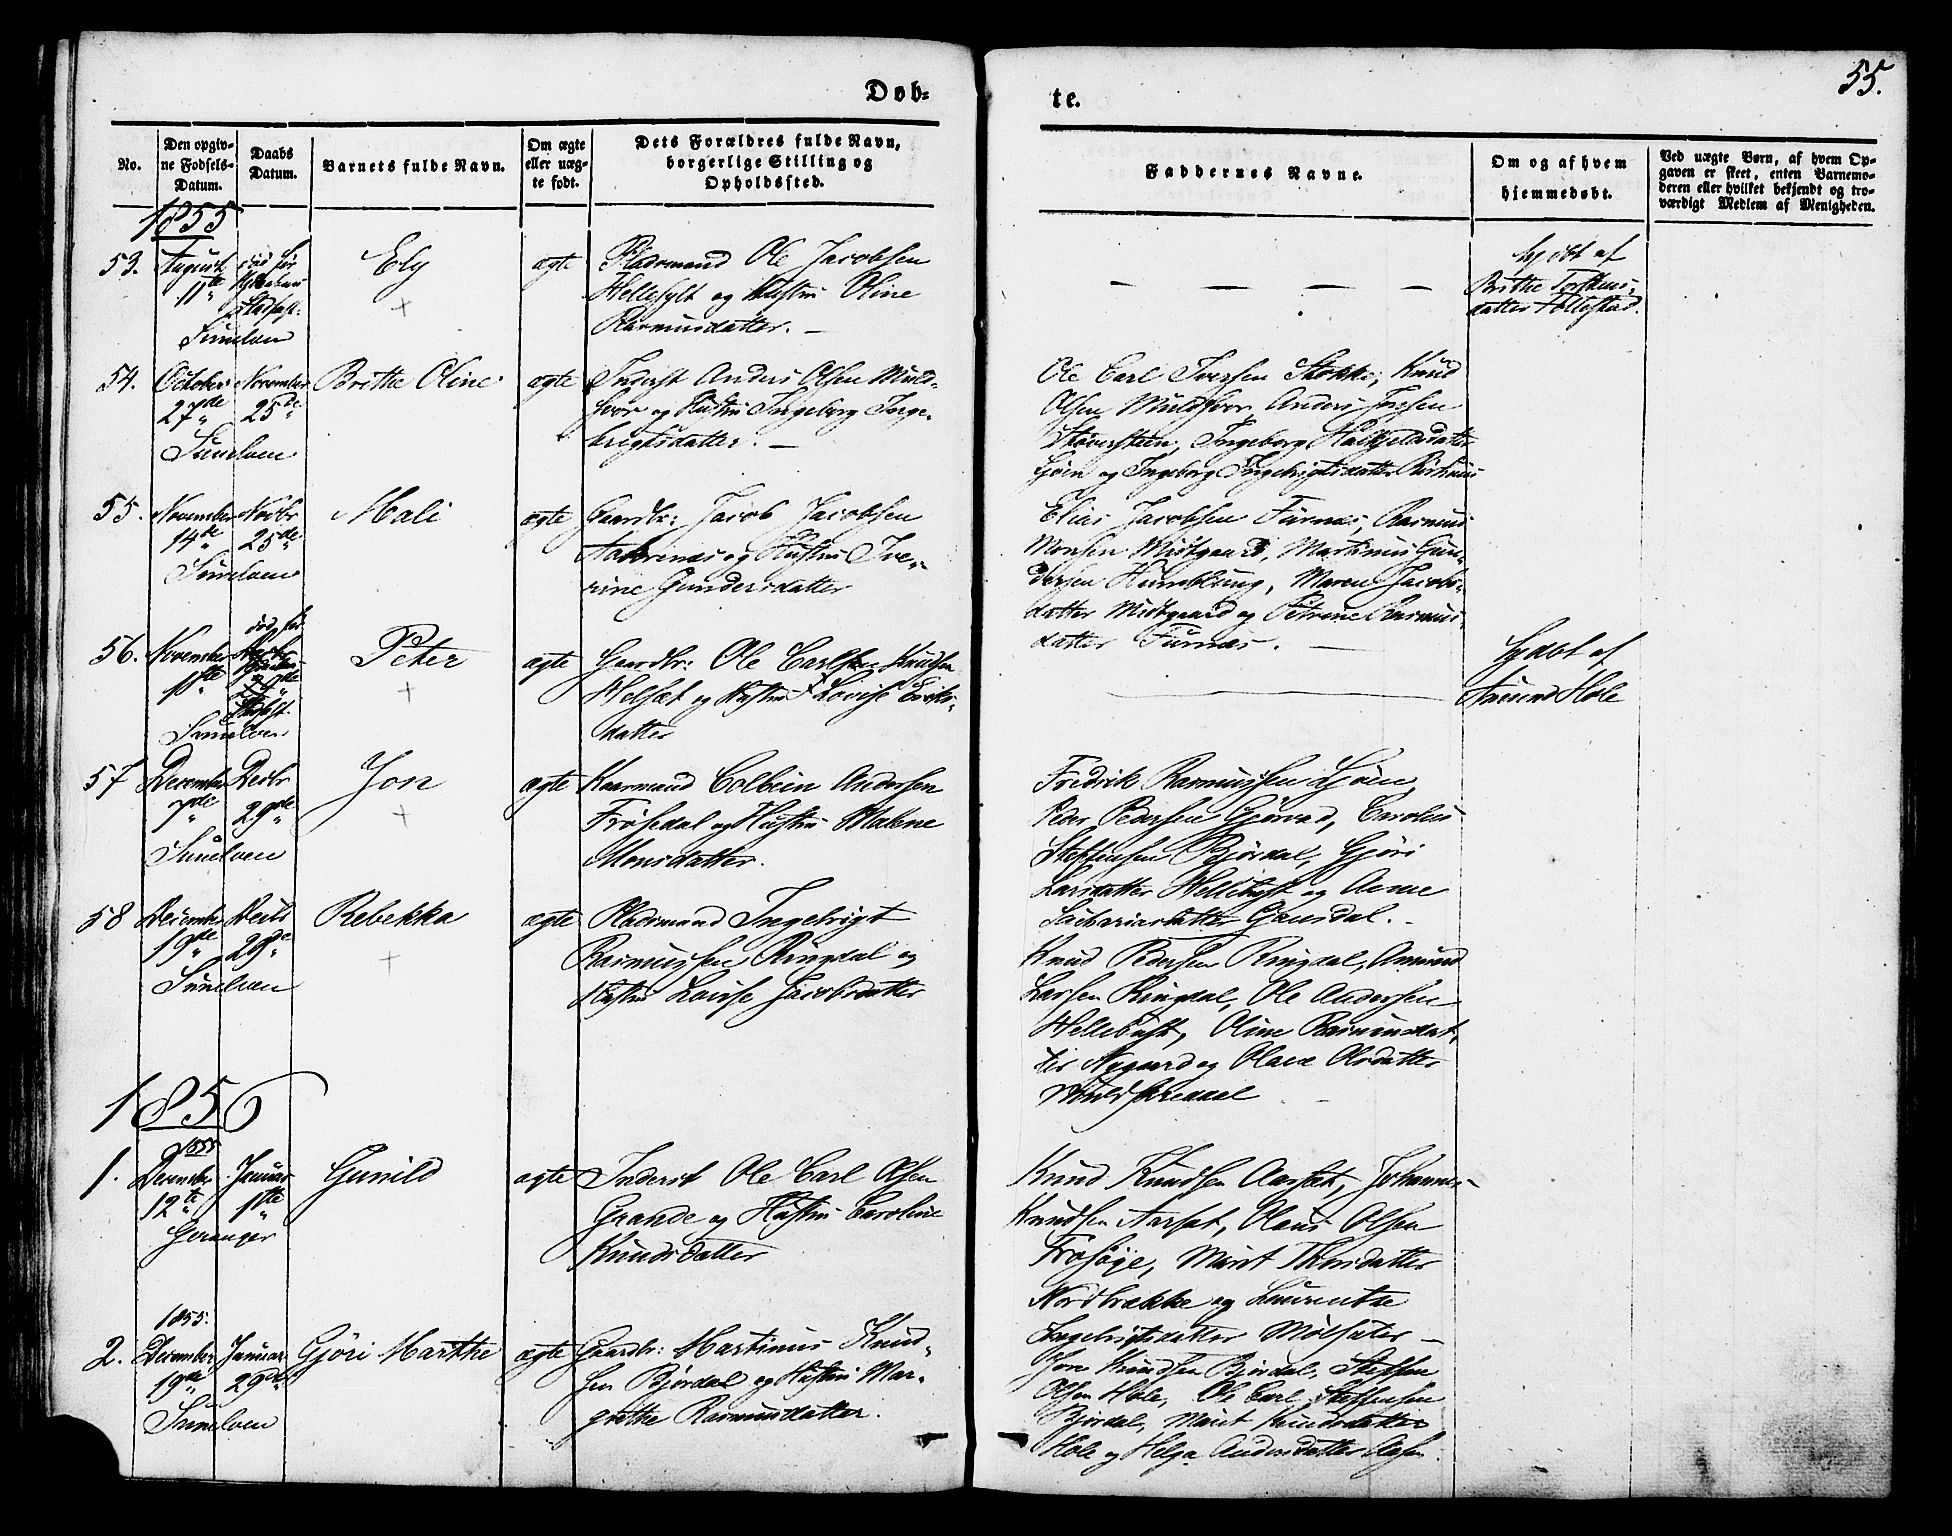 Døb-
te.
55.
No.
Den opgiv-
ne Fødsels-
Datum.
Daabs
Datum.
Barnets fulde Navn.
Om ægte
eller uæg-
te født.
Dets Forældres fulde Navn,
borgerlige Stilling og
Opholdssted.
Faddernes Navne.
Om og af hvem
hjemmedøbt.
Ved uægte Børn, af hvem Op-
gaven er skeet, enten Barnemo-
deren eller hvilket bekjendt og tro-
værdigt Medlem af Menigheden.
1855
53.
August
11te
død før
Stadfæst.
Sunelven
Ely
ægte
Pladsmand Ole Jacobsen
Hellesylt og Hustru Oline
Rasmusdatter. —
— — — —
hjdøbt af
Brithe
datter Tollefstad.
54.
October
27de
November
25de
Sunelven
Brithe Oline
ægte
Inderst Anders Olsen Muld-
svor og Hustru Ingeborg Inge-
brigtsdatter. —
Ole Carl Iversen Stokke, Knud
Olsen Muldsvor, Anders
Ingeborg
og Ingeborg Ingebrigtsdatter
55.
November
14de
Novbr
25de
Sunelven
Mali
ægte
Gaardbr: Jacob Jacobsen
og Hustru Ive-
rine Gundersdatter
Elias Jacobsen Furnæs, Rasmus
Monsen Midtgaard, Martinus Gun-
dersen Humblung, Maren Jacobs-
datter Midtgaard og Petrine Rasmus-
datter Furnæs. —
56.
November
død før
Stadfæst.
Sunelven
Peter
ægte
Gaardbr: Ole Carl Knudsen
og Hustru Lovise
datter
Hjdøbt af
Amund Hole
57
December
7de
Decbr
29de
Sunelven
Jon
ægte
Kaarmand Colbein Andersen
Frøsedal og Hustru Malene
Monsdatter.
Fredrik Rasmussen
Peder Pedersen Gjærvad, Carolus
Steffensen Bjørdal, Gjøri
Larsdatter og Anne
Sachariasdatter Gausdal. -
58
December
19de
Decbr
29de
Sunelven
Rebekka
ægte
Pladsmand Ingebrigt
Rasmussen Ringdal og
Hustru Lovise Jacobsdatter
Knud Pedersen Ringdal, Amund
Larsen Ringdal, Ole Andersen
Oline Rasmusdat-
ter Nygaard og Olave Olsdatter
1856
1.
1855
December
12te
Januar
1ste
Geranger
Gunild
ægte
Inderst Ole Carl Olsen
Grande og Hustru Caroline
Knudsdatter
Knud Knudsen Aarsæt, Johannes
Knudsen Aarsæt, Olaus Olsen
Frøsøye, Marit Thorsdatter
Nordbrække og Laurentse
Ingebrigtsdatter Mølsæter —
2.
1855.
December
19de
Januar
29de
Sunelven
Gjøri Marthe
ægte
Gaardbr: Martinus Knud-
sen Bjørdal og Hustru Mar-
grethe Rasmusdatter.
Jon Knudsen Bjørdal, Steffen
Olsen Hole, Ole Carl Steffensen
Bjørdal, Marit Knudsdatter
Hole og Helga Andersdatter